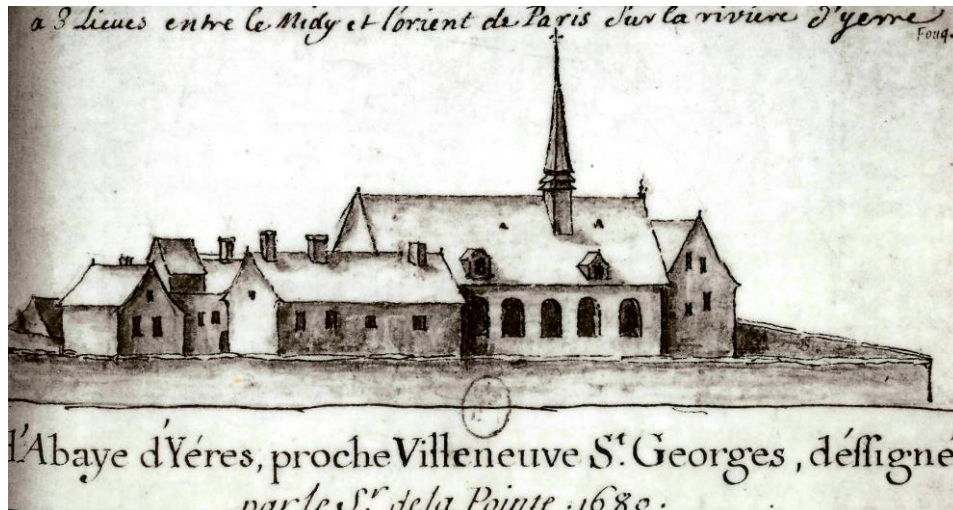 a 3 Lieues entre le Midy et l'orient de Paris sur la riviere d'yerre
Fouq.
l'Abaye d'Yéres, proche Villeneuve St. Georges, déssigné
par le Sr. de la Pointe .1680.